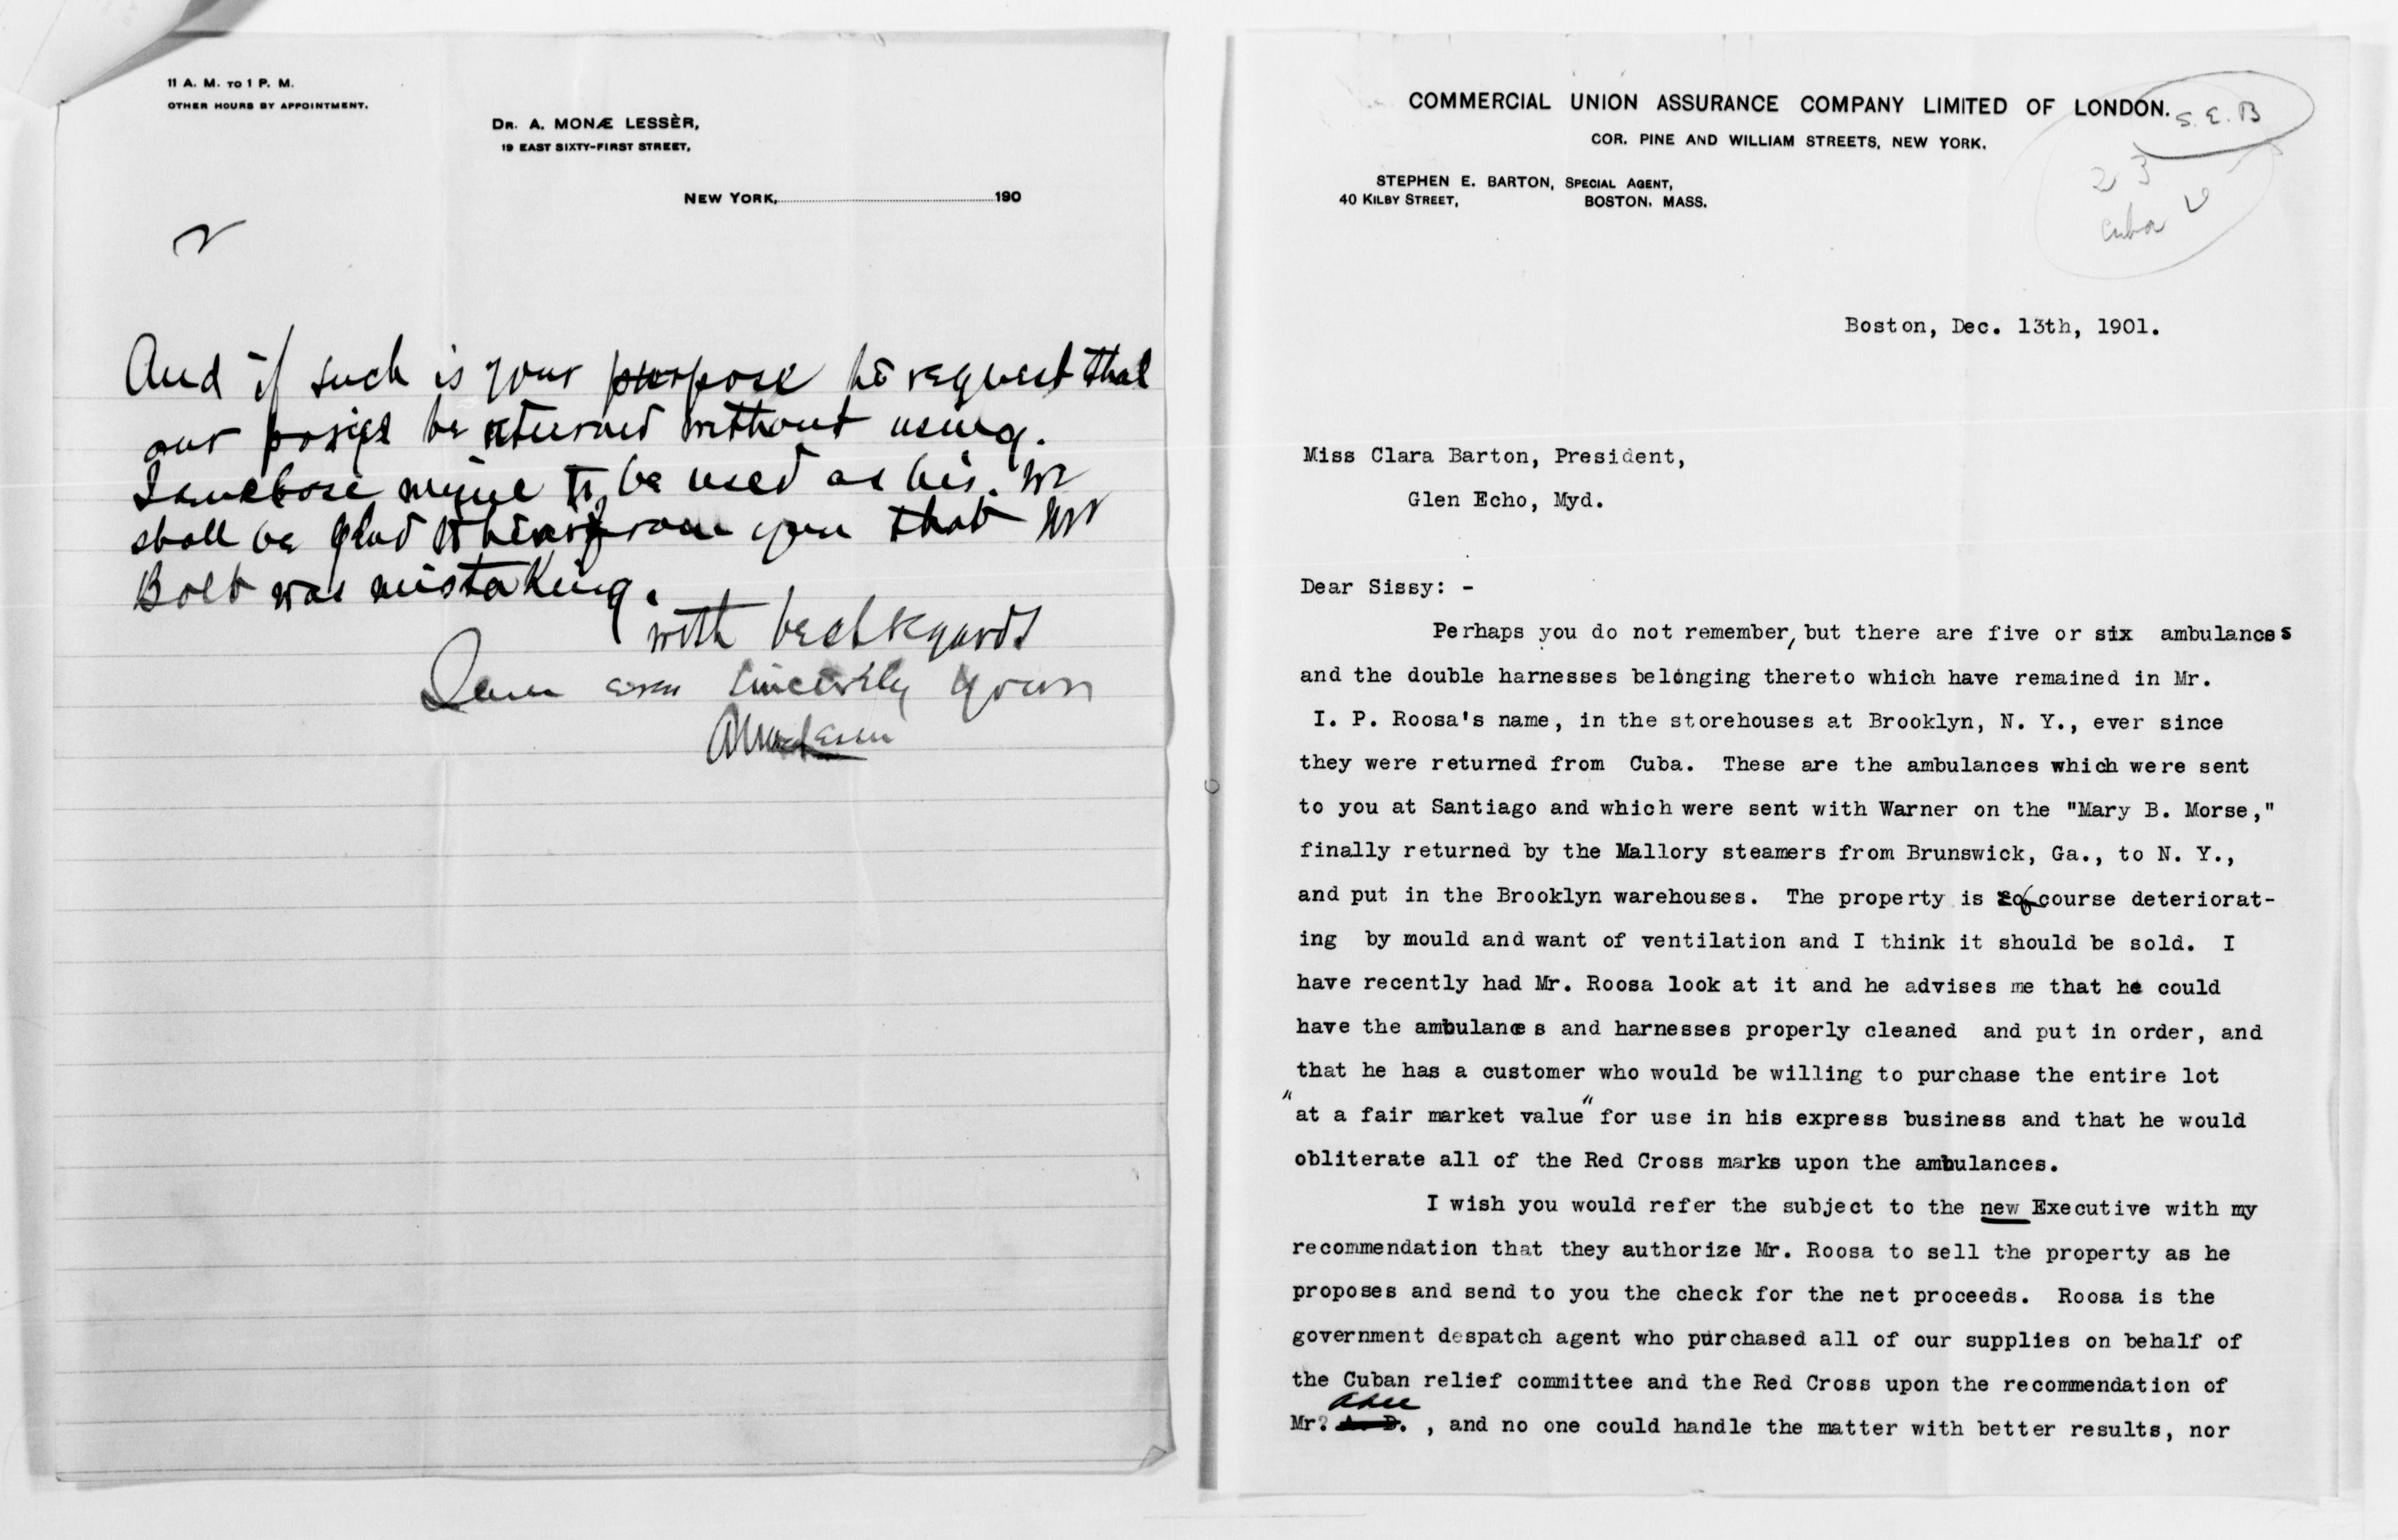 11 A. M. TO 1 P. M.
OTHER HOURS BY APPOINTMENT.
DR. A. MONÆ LESSÈR,
19 EAST SIXTY-FIRST STREET,
NEW YORK, 190
2
And if such is your purpose he request that
our be returned without using.
I enclose mine to be used as his. We
shall be glad to hear from you that Mr
Bolt was mistaking.
with best regards
I am ever sincerely yours
COMMERCIAL UNION ASSURANCE COMPANY LIMITED OF LONDON.
S. E. B
COR. PINE AND WILLIAM STREETS, NEW YORK.
23
STEPHEN E. BARTON, SPECIAL AGENT,
40 KILBY STREET, BOSTON, MASS.
Cuba
Boston, Dec. 13th, 1901.
Miss Clara Barton, President,
Glen Echo, Myd.
Dear Sissy: -
Perhaps you do not remember, but there are five or six ambulances
and the double harnesses belonging thereto which have remained in Mr.
I. P. Roosa's name, in the storehouses at Brooklyn, N. Y., ever since
they were returned from Cuba. These are the ambulances which were sent
to you at Santiago and which were sent with Warner on the "Mary B. Morse,"
finally returned by the Mallory steamers from Brunswick, Ga., to N. Y.,
and put in the Brooklyn warehouses. The property is of course deteriorat-
ing by mould and want of ventilation and I think it should be sold. I
have recently had Mr. Roosa look at it and he advises me that he could
have the ambulances and harnesses properly cleaned and put in order, and
that he has a customer who would be willing to purchase the entire lot
"at a fair market value" for use in his express business and that he would
obliterate all of the Red Cross marks upon the ambulances.
I wish you would refer the subject to the new Executive with my
recommendation that they authorize Mr. Roosa to sell the property as he
proposes and send to you the check for the net proceeds. Roosa is the
government despatch agent who purchased all of our supplies on behalf of
the Cuban relief committee and the Red Cross upon the recommendation of
Mr? , and no one could handle the matter with better results, nor